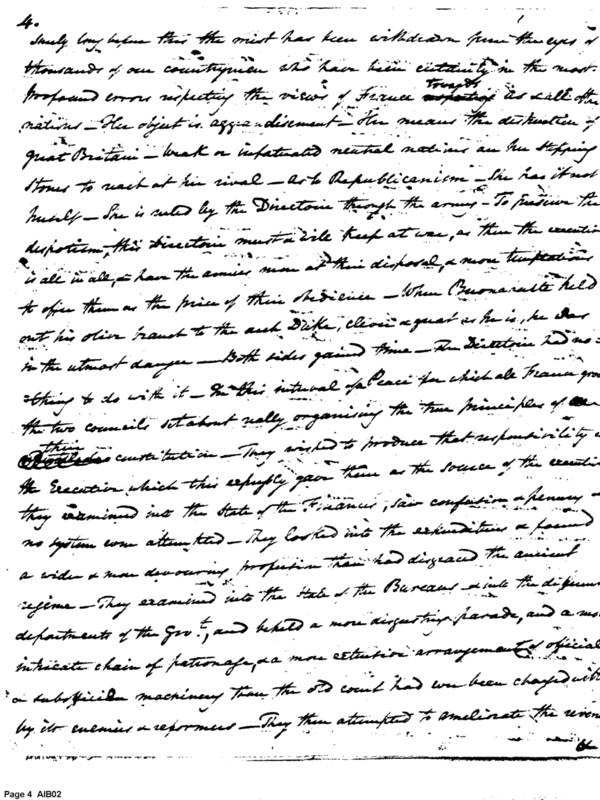 4.
Surely long before this the mist has been withdrawn from the eyes of
thousands of our countrymen who have been certainly in the most
profound errors respecting the views of France towards us & all other
nations – Her object is aggrandisement – Her means the destruction of
great Britain – Weak or infatuated neutral nations are her stepping
stones to reach at her rival – As to Republicanism – She has it not
herself – She is ruled by the Directoire through the army – To preserve the
despotism, this Directoire must & will keep at war, as then the executive
is all in all, & have the armies more at their disposal, & more temptations
to offer them as the price of their obedience – When Buonaparte held
out his olive branch to the arch Duke, clever & great as he is, he was
in the utmost danger – Both sides gained time – The Directoire had no=
=thing to do with it – In this interval of a Peace for which all France
the two councils set about really organising the true principles of
their constitution – They wished to produce that responsibility
the Executive which this expressly gave them as the source of the executive
they examined into the State of the Finances, saw confusion & penury &
no system even attempted – They looked into the expenditures & found
a wider & more devouring profusion than had disgraced the ancient
regime – They examined into the State of the Bureaus & into the different
departments of the Govt., and beheld a more disgusting parade, and a more
intricate chain of patronage, & a more extensive arrangement of official
machinery than the old court had ever been charged with
by its enemies & reformers – They then attempted to ameliorate the
Page 4 AIB02